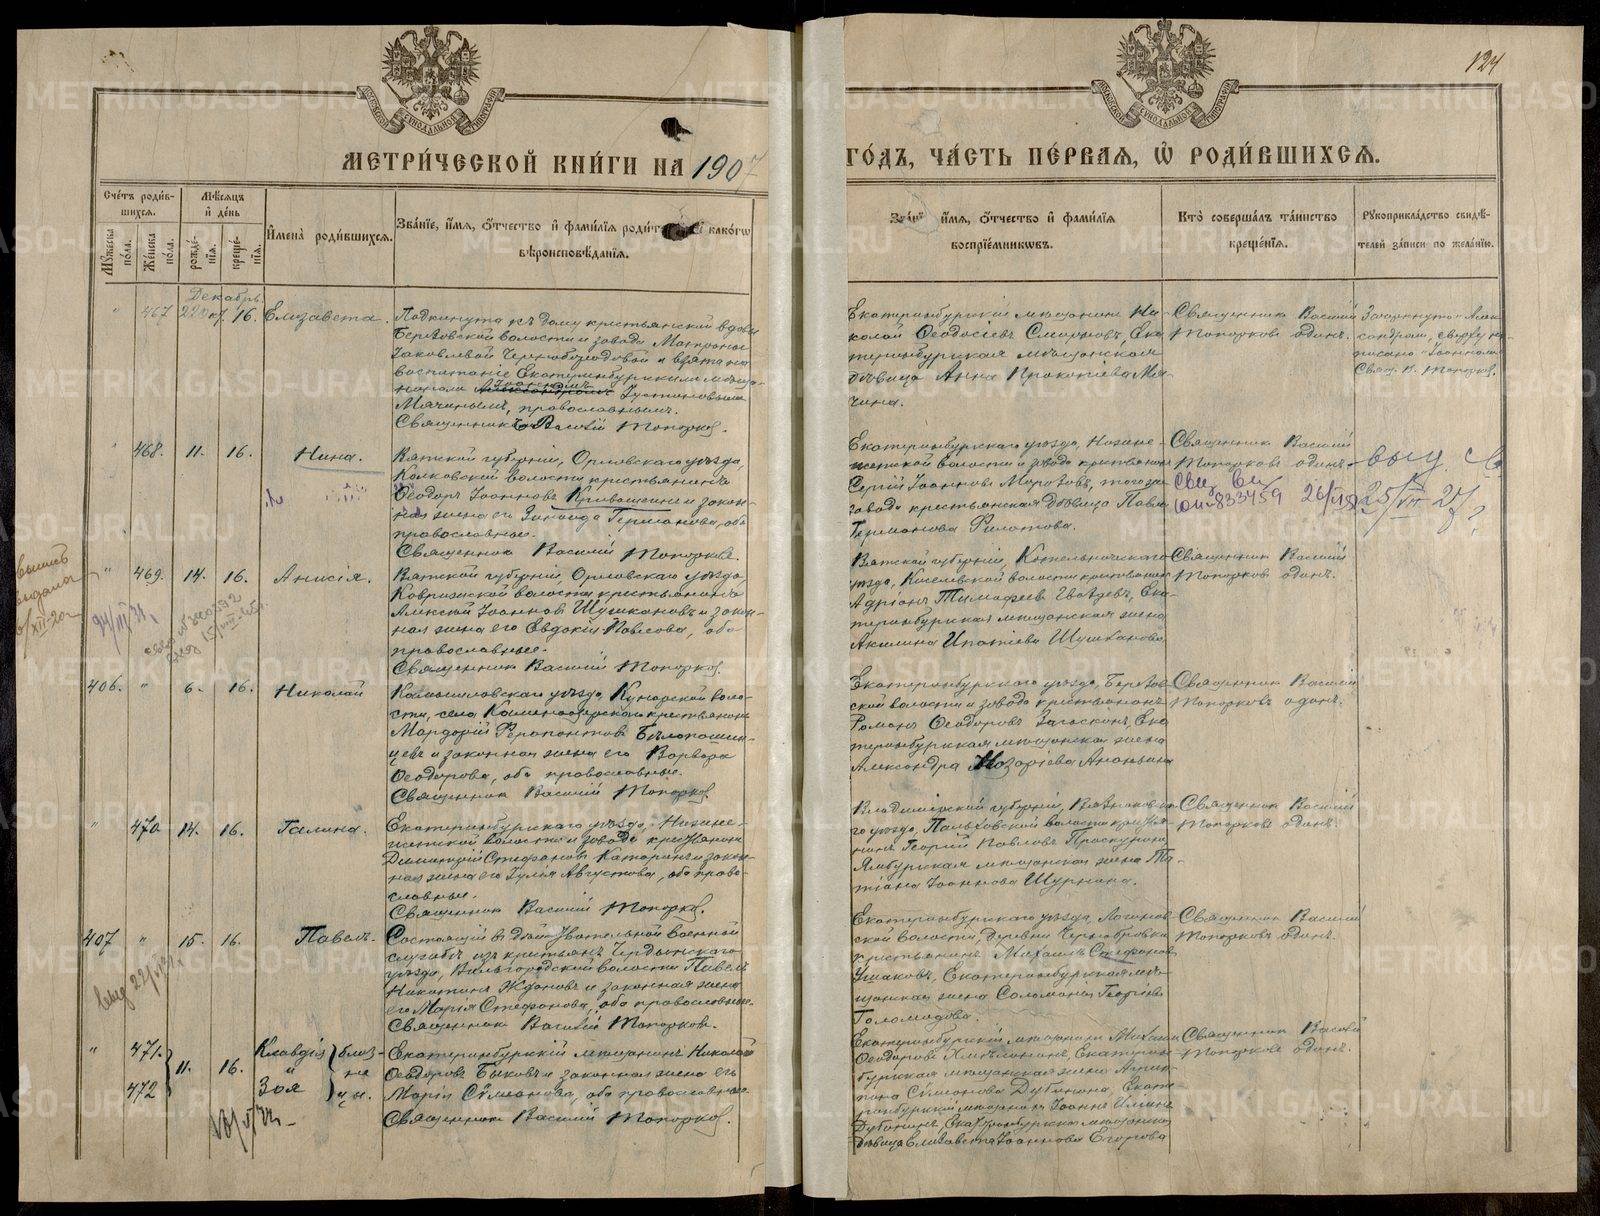 124
МЕТРИ́ЧЕСКОЙ КНИ́ГИ НА 1907
ГО́ДЪ, ЧА́СТЬ ПЕ́РВАЯ, Ѽ РОДИ́ВШИХСЯ.
Сче́тъ роди́в-
шихся.
Мѣ́сяцъ
и҆ де́нь
Мꙋ́жеска по́ла.
Же́нска по́ла.
рожде́-
нїя.
креще́-
нїя.
И҆мена̀ роди́вшихся.
Зва́нїе, и҆́мя, ѻ҆́тчество и҆ фами́лїя какогѡ
вѣроисповѣ́данїя.
и҆́мя, ѻ҆́тчество и҆ фами́лїя
воспрїе́мникѡвъ.
Кто̀ соверша́лъ та́инство
креще́нїя.
Рꙋкоприкла́дство свидѣ́-
телей за́писи по жела́нїю.
Декабрь.
" 467 16. Елизавета.
Подкинута къ дому крестьянской вдовы
Березовской волости и завода Матроны
Іаковлевой Чернобородовой и взята на
воспитаніе Екатеринбургскимъ мѣща-
ниномъ Іоанномъ Іустиновымъ
Мячинымъ, православнымъ.
Священникъ Василій Топорковъ.
Екатеринбургскій мѣщанинъ Ни-
колай Ѳеодосіевъ Смирновъ, Ека-
теринбургская мѣщанская
дѣвица Анна Прокопіева Мя-
чина.
Священникъ Василій
Топорковъ одинъ.
Зачеркнуто "Алек
сандромъ, сверху на-
писано "Іоанномъ"
Свящ. В. Топорковъ.
" 468. 11. 16. Нина.
Вятской губерніи, Орловскаго уѣзда,
волости крестьянинъ
Ѳеодоръ Іоанновъ Кривошеинъ и закон-
ная жена его Зинаида Германова, оба
православные.
Священникъ Василій Топорковъ.
Екатеринбургскаго уѣзда, Нязепе-
тровской волости и завода крестьянинъ
Сергій Іоанновъ Морозовъ, того же
завода крестьянская дѣвица Павла
Германова Филатова.
Священникъ Василій
Топорковъ одинъ.
833459
" 469. 14. 16. Анисія.
Вятской губерніи, Орловскаго уѣзда,
волости крестьянинъ
Алексій Іоанновъ Шушкановъ и закон-
ная жена его Евдокія Павлова, оба
православные.
Священникъ Василій Топорковъ.
Вятской губерніи, Котельническаго
уѣзда, Киселевской волости крестьянинъ
Адріанъ Тимофеевъ Гвоздевъ, Ека-
теринбургская мѣщанская жена
Акилина Ипатіева Шушканова
Священникъ Василій
Топорковъ одинъ.
406. " 6. 16. Николай
Камышловскаго уѣзда, Кунарской воло-
сти, села Каменноозерскаго крестьянинъ
Мардарій Ферапонтовъ Бѣлопашин-
цевъ и законная жена его Варвара
Ѳеодорова, оба православные.
Священникъ Василій Топорковъ.
Екатеринбургскаго уѣзда, Березов-
ской волости и завода крестьянинъ
Романъ Ѳеодоровъ Загоскинъ, Ека-
теринбургская мѣщанская жена
Александра Назаріева Ананьина
Священникъ Василій
Топорковъ одинъ.
" 470. 14. 16. Галина.
Екатеринбургскаго уѣзда, Нязепе-
тровской волости и завода крестьянинъ
Димитрій Стефановъ Катаринъ и закон-
ная жена его Іулія Августова, оба право-
славные.
Священникъ Василій Топорковъ.
Владимірской губерніи, Вязниковска-
го уѣзда, Палеховской волости кресть-
нинъ Георгій Павловъ Проскуринъ
Ямбургская мѣщанская жена Та-
тіана Іоаннова Шурпина.
Священникъ Василій
Топорковъ одинъ.
407 " 15. 16. Павелъ.
Состоящій въ дѣйствительной военной
службѣ изъ крестьянъ Чердынскаго
уѣзда, Вильгородской волости Павелъ
Никитинъ Ждановъ и законная жена
его Марія Стефанова, оба православные.
Священникъ Василій Топорковъ.
Екатеринбургскаго уѣзда, Логинов-
ской волости, деревни Чернобровки
крестьянинъ Михаилъ Стефановъ
Ушаковъ, Екатеринбургская мѣ-
щанская жена Соломонія Георгіева
Голомидова.
Священникъ Василій
Топорковъ одинъ.
" 471. 472 11. 16. Клавдія и Зоя близ-
не
цы.
Екатеринбургскій мѣщанинъ Николай
Ѳеодоровъ Быковъ и законная жена его
Марія Сѵмеонова, оба православные.
Священникъ Василій Топорковъ.
Екатеринбургскій мѣщанинъ Михаилъ
Ѳеодоровъ Хмѣлининъ, Екатерин-
бургская мѣщанская жена Агрип-
пина Сѵмеонова Дубинина, Екате-
ринбургскій мѣщанинъ Іоаннъ Иліинъ
Дубининъ, Екатеринбургская мѣщанская
дѣвица Елизавета Іоаннова Егорова
Священникъ Василій
Топорковъ одинъ.
METRIKI.GASO-URAL.RU